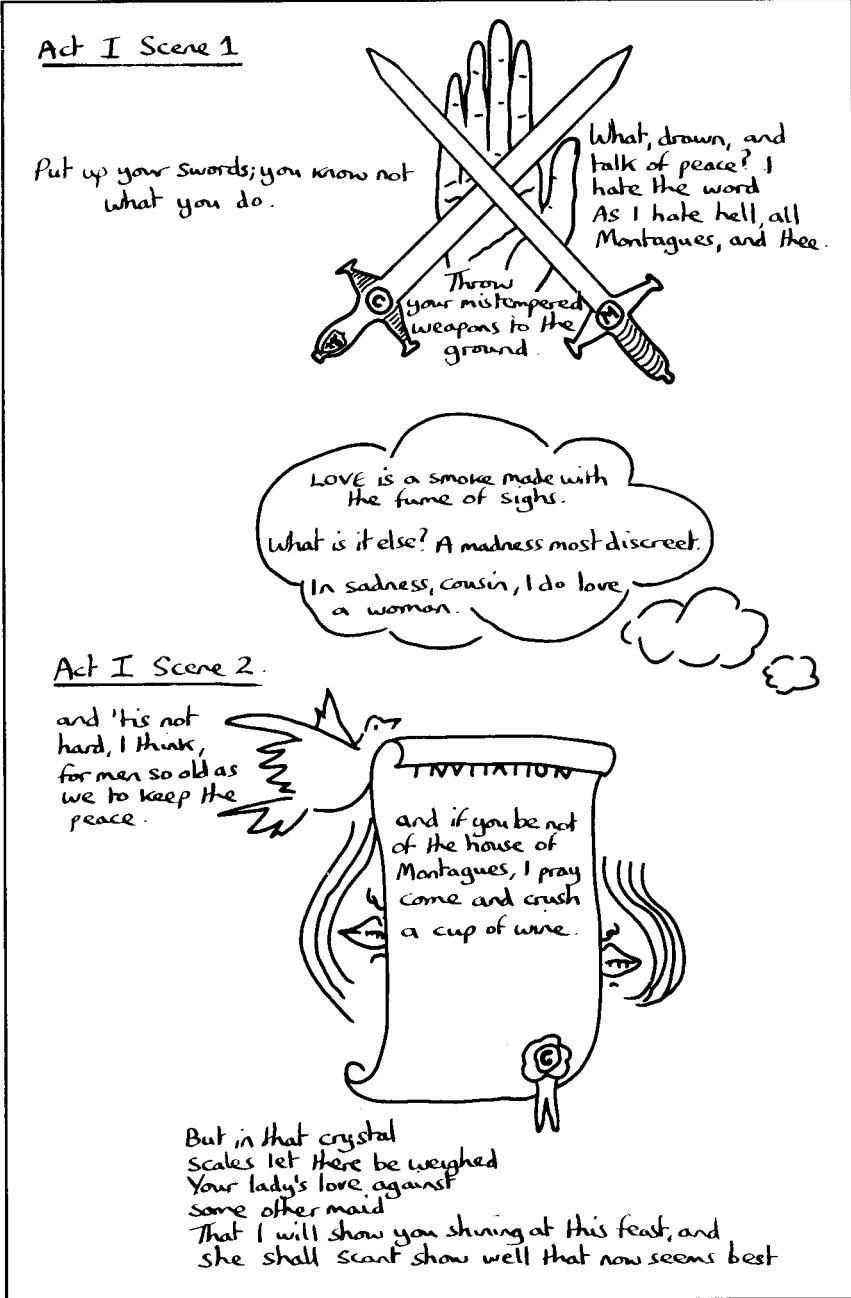 Act I Scene 1
Put up your swords; you know not
what you do.
What, drawn, and
talk of peace? I
hate the word
As I hate hell, all
Montagues, and thee.
Throw
your mistempered
weapons to the
ground.
C
M
LOVE is a smoke made with
the fume of sighs.
What is it else? A madness most discreet.
In sadness, cousin, I do love
a woman.
Act I Scene 2.
and 'tis not
hard, I think,
for men so old as
we to keep the
peace.
INVITATION
and if you be not
of the house of
Montagues, I pray
come and crush
a cup of wine.
C
But in that crystal
scales let there be weighed
Your lady's love against
some other maid
That I will show you shining at this feast, and
she shall scant show well that now seems best